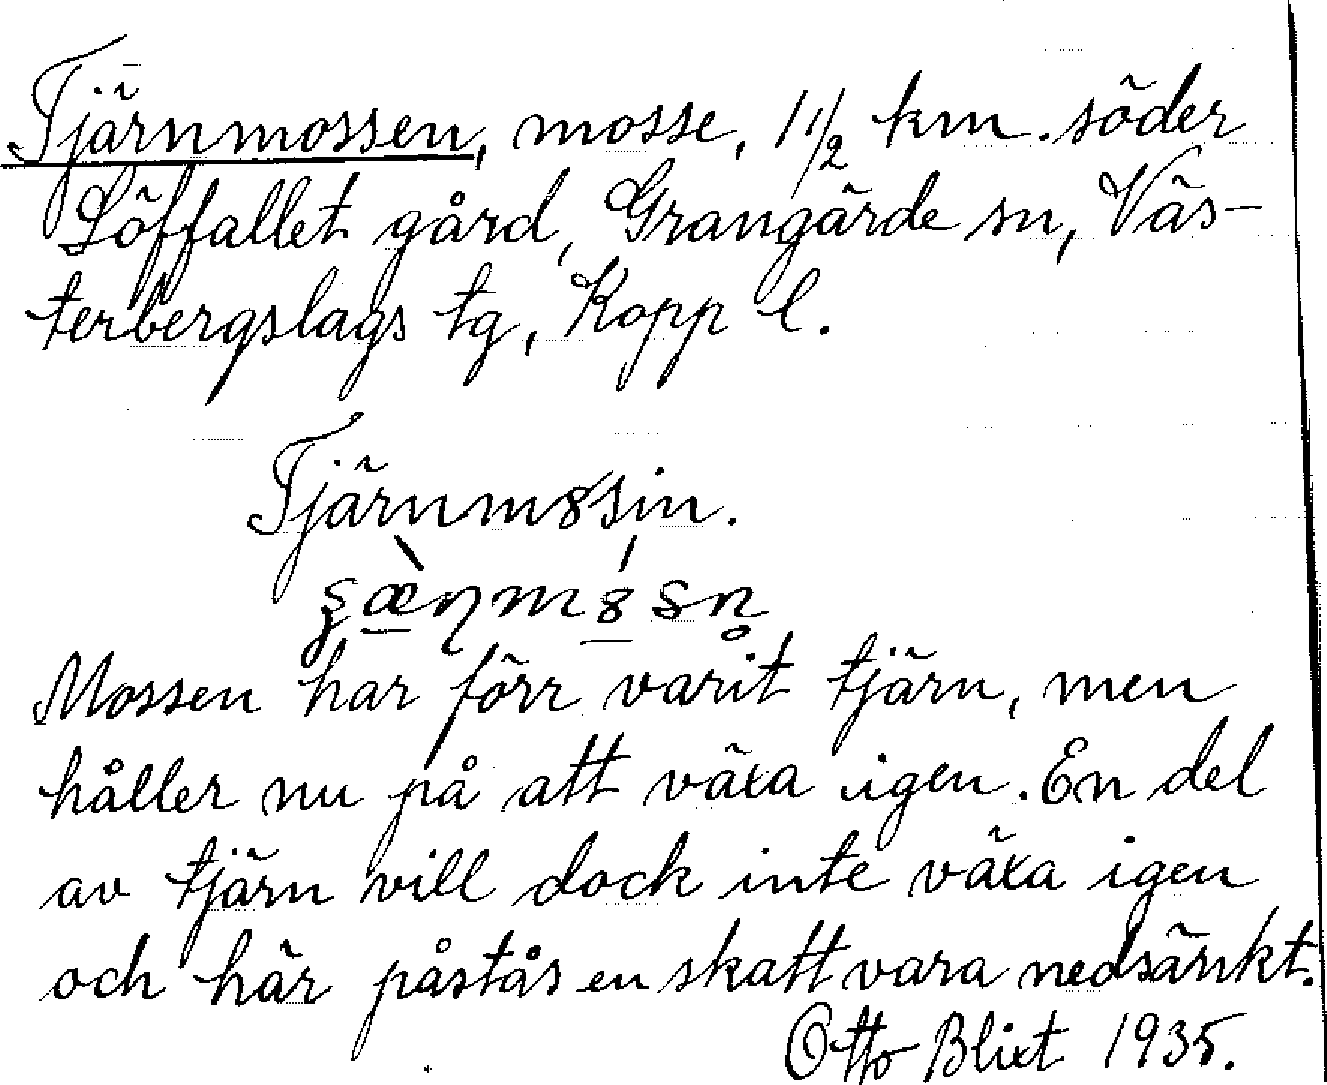 Tjärnmossen, mosse, 1 1/2 km. söder
Löffallet gård, Grangärde sn, Väs-
terbergslags tg, Kopp l.
Tjärnm8sin.
Mossen har förr varit tjärn, men
håller nu på att växa igen. En del
av tjärn vill dock inte växa igen
och här påstås en skatt vara nedsänkt.
Otto Blixt 1935.